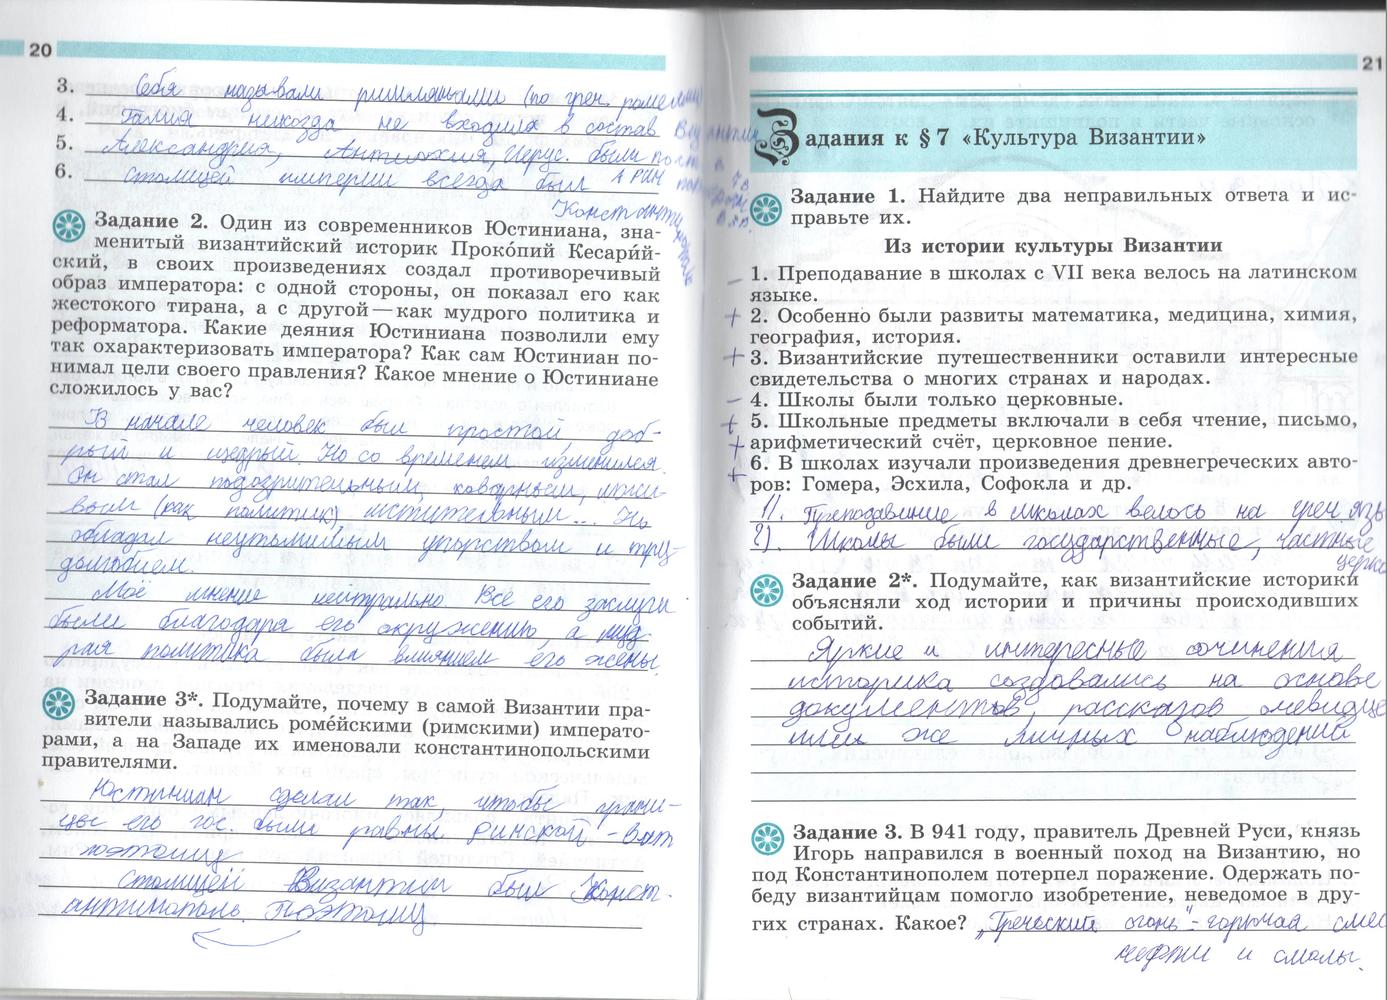 20
3. Себя называли римлянами (по греч. ромеями)
4. Галлия никогда не входила в состав Византии
5. Александрия, Антиохия, Иерус. были
6. столицей империи всегда был
Константинополь
Задание 2. Один из современников Юстиниана, зна-
менитый византийский историк Проко́пий Кесари́й-
ский, в своих произведениях создал противоречивый
образ императора: с одной стороны, он показал его как
жестокого тирана, а с другой — как мудрого политика и
реформатора. Какие деяния Юстиниана позволили ему
так охарактеризовать императора? Как сам Юстиниан по-
нимал цели своего правления? Какое мнение о Юстиниане
сложилось у вас?
В начале человек был простой, доб-
рый и щедрый. Но со временем изменился.
Он стал подозрительным, коварным, лжи-
вым (как политик) мстительным... Но
обладал неутомимым упорством и тру-
долюбием.
Моё мнение нейтрально. Все его заслуги
были благодаря его окружению, а муд-
рая политика была влиянием его жены.
Задание 3*. Подумайте, почему в самой Византии пра-
вители назывались роме́йскими (римскими) императо-
рами, а на Западе их именовали константинопольскими
правителями.
Юстиниан сделал так, чтобы грани-
цы его гос. были равны римской - вот
поэтому
столицей Византии был Конст-
антинополь. Поэтому
21
Задания к § 7 «Культура Византии»
Задание 1. Найдите два неправильных ответа и ис-
правьте их.
Из истории культуры Византии
- 1. Преподавание в школах с VII века велось на латинском
языке.
+ 2. Особенно были развиты математика, медицина, химия,
география, история.
+ 3. Византийские путешественники оставили интересные
свидетельства о многих странах и народах.
- 4. Школы были только церковные.
+ 5. Школьные предметы включали в себя чтение, письмо,
+ арифметический счёт, церковное пение.
6. В школах изучали произведения древнегреческих авто-
+ ров: Гомера, Эсхила, Софокла и др.
1). Преподавание в школах велось на греч. яз
2). Школы были государственные, частные
церко
Задание 2*. Подумайте, как византийские историки
объясняли ход истории и причины происходивших
событий.
Яркие и интересные сочинения
историка создовались на основе
документов, рассказов очевидце
или же личных наблюдений
Задание 3. В 941 году, правитель Древней Руси, князь
Игорь направился в военный поход на Византию, но
под Константинополем потерпел поражение. Одержать по-
беду византийцам помогло изобретение, неведомое в дру-
гих странах. Какое? „Греческий огонь" - горючая смес
нефти и смолы.